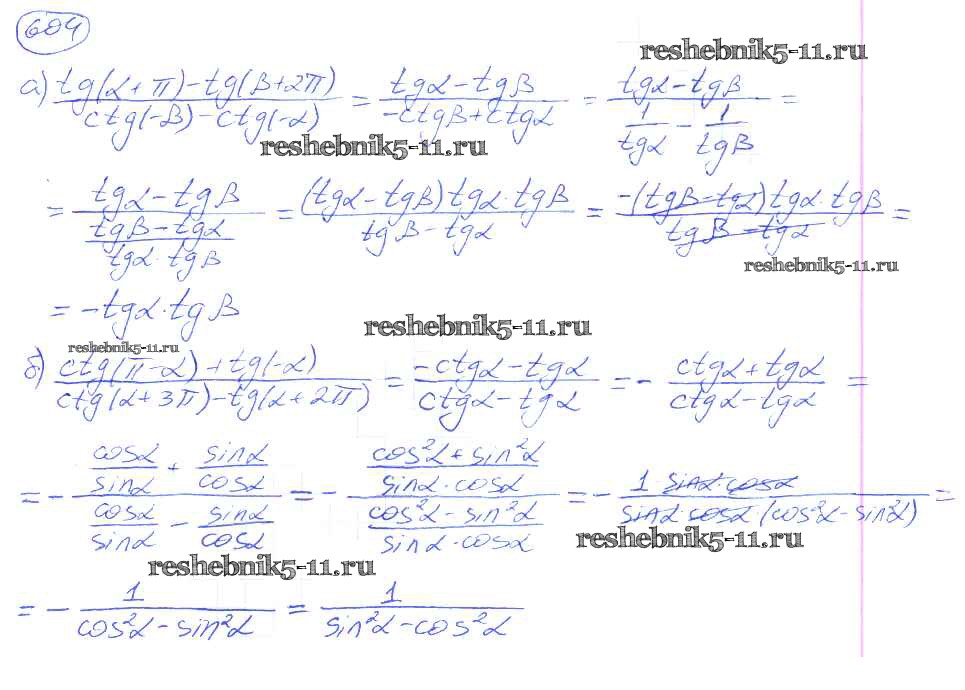 604
reshebnik5-11.ru
а) (tg(α+π)-tg(β+2π))/(ctg(-β)-ctg(-α)) = (tgα-tgβ)/(-ctgβ+ctgα) = (tgα-tgβ)/(1/tgα - 1/tgβ) =
reshebnik5-11.ru
= (tgα-tgβ)/((tgβ-tgα)/(tgα·tgβ)) = ((tgα-tgβ)tgα·tgβ)/(tgβ-tgα) = (-(tgβ-tgα)tgα·tgβ)/(tgβ-tgα) =
reshebnik5-11.ru
= -tgα·tgβ
reshebnik5-11.ru
reshebnik5-11.ru
б) (ctg(π-α)+tg(-α))/(ctg(α+3π)-tg(α+2π)) = (-ctgα-tgα)/(ctgα-tgα) = - (ctgα+tgα)/(ctgα-tgα) =
= - (cosα/sinα + sinα/cosα)/(cosα/sinα - sinα/cosα) = - ((cos²α+sin²α)/(sinα·cosα))/((cos²α-sin²α)/(sinα·cosα)) = - (1 sinα·cosα)/(sinα·cosα(cos²α-sin²α)) =
reshebnik5-11.ru
reshebnik5-11.ru
= - 1/(cos²α-sin²α) = 1/(sin²α-cos²α)